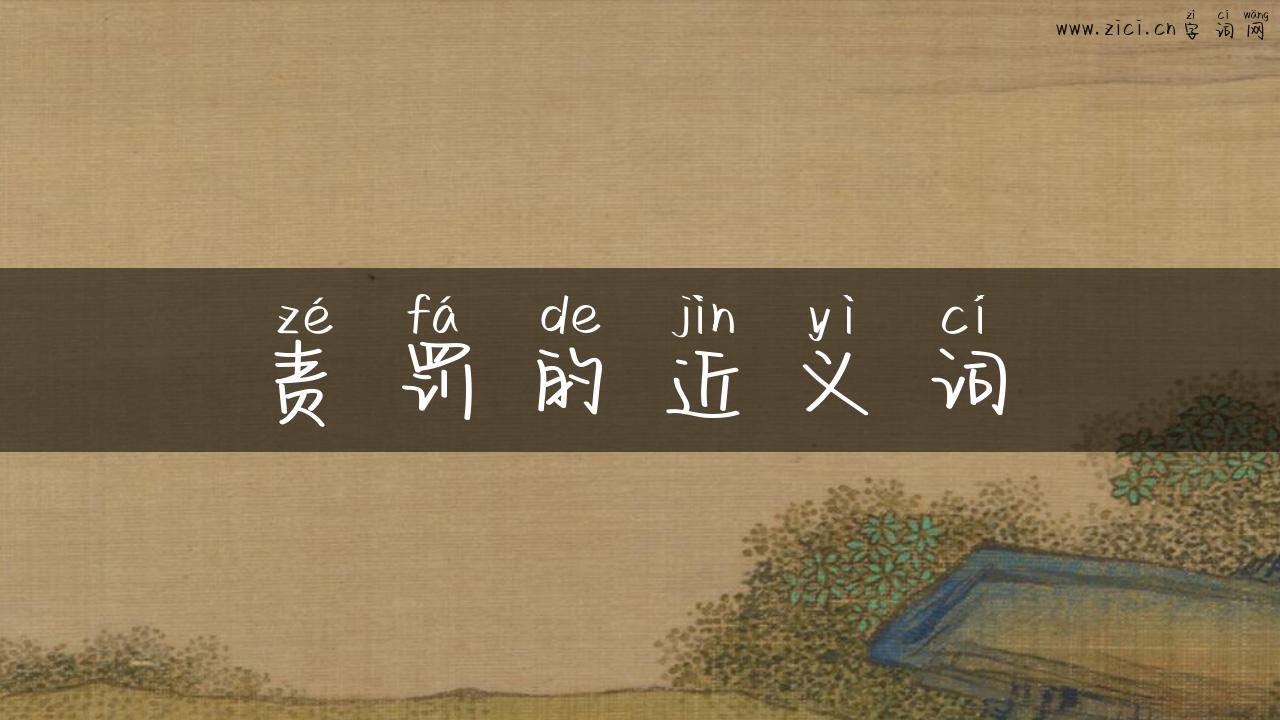 zì cí wǎng
www.zici.cn字词网
zé fá de jìn yì cí
责罚的近义词